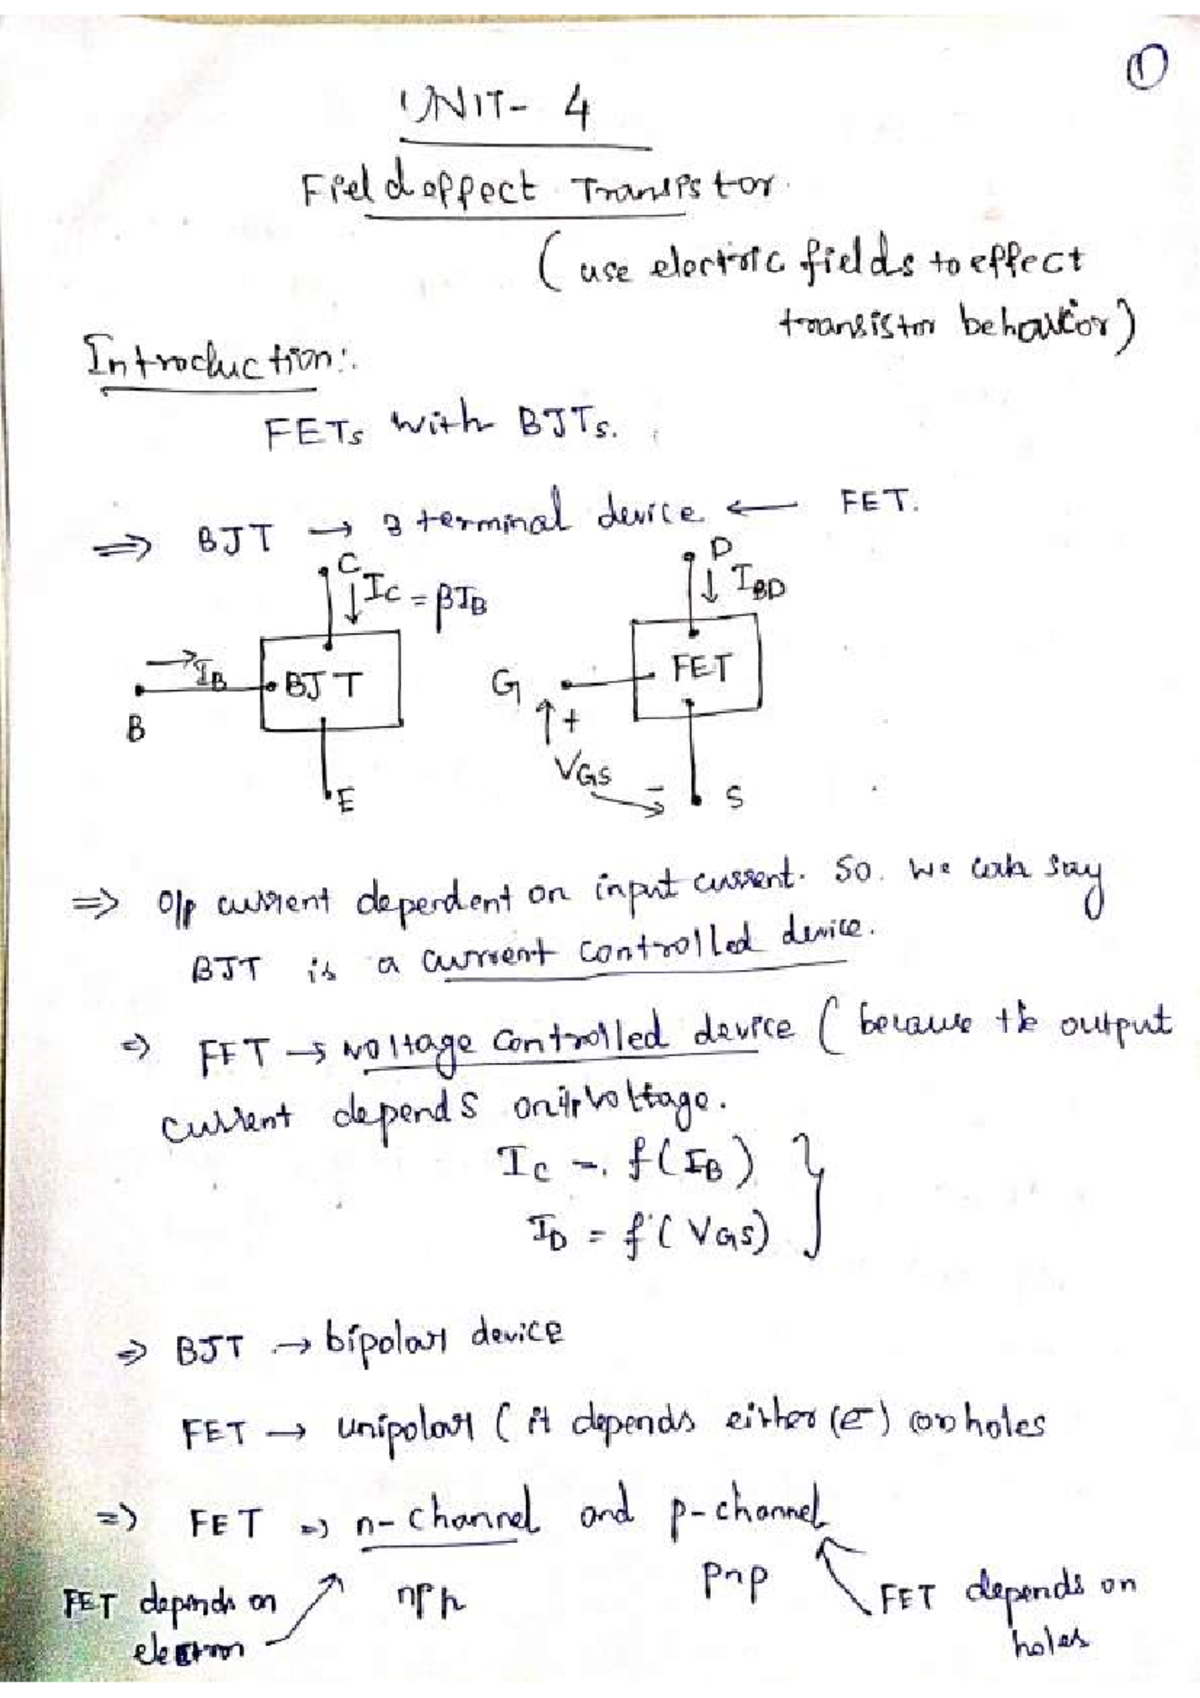 1
UNIT- 4
Field effect Transistor.
(use electric fields to effect
transistor behavior)
Introduction:.
FETs with BJTs.
⇒ BJT → 3 terminal device ← FET.
C
↓ IC = βIB
→ IB
BJT
B
E
D
↓ IBD
G
FET
+
VGS
-
S
⇒ O/p current dependent on input current. So. we can say
BJT is a current controlled device.
⇒ FET → voltage controlled device ( because the output
current depends on i/p voltage.
IC = f(IB) }
ID = f(VGS)
⇒ BJT → bipolar device
FET → unipolar ( it depends either (e-) (or) holes
⇒ FET ⇒ n-channel and p-channel
npn
pnp
FET depends on
electron
FET depends on
holes